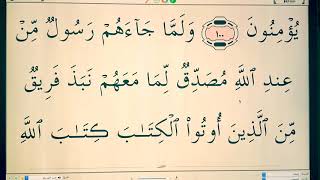 يُؤْمِنُونَ ١٠٠ وَلَمَّا جَآءَهُمْ رَسُولٌ مِّنْ
عِندِ ٱللَّهِ مُصَدِّقٌ لِّمَا مَعَهُمْ نَبَذَ فَرِيقٌ
مِّنَ ٱلَّذِينَ أُوتُوا۟ ٱلْكِتَـٰبَ كِتَـٰبَ ٱللَّهِ